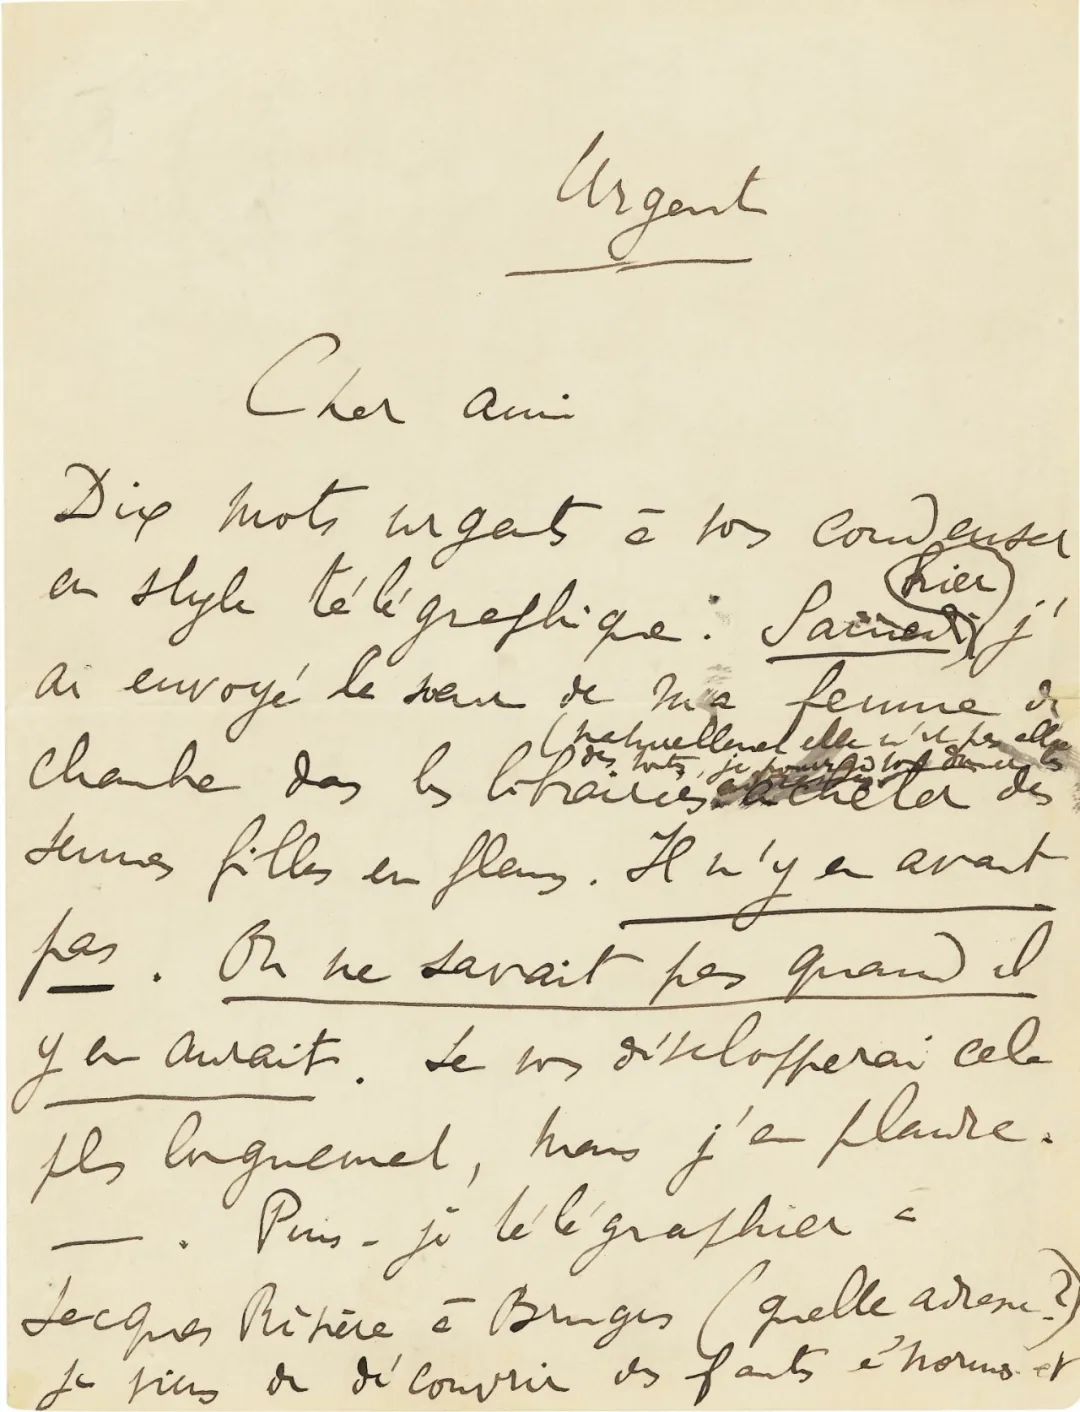 Urgent
Cher ami
Dix mots urgents à vos condenser
en style télégraphique : hier Samedi j'
ai envoyé la sœur de ma femme de
(naturellement elle n'est pas allée
des toits, je pourrais vous donner les
chambre dans les librairies acheter des
Jeunes filles en fleurs. Il n'y en avait
pas. On ne savait pas quand il
y en aurait. Je vos développerai cela
pls longuement, mais j'en pleure.
— . Puis-je télégraphier à
Jacques Rivière à Bruges (quelle adresse ?)
je viens de découvrir des fautes énormes et